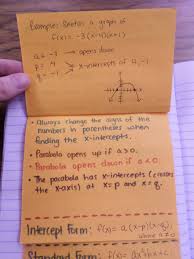 Example: Sketch a graph of
f(x) = -3(x-4)(x+1)
a = -3 → opens down
p = 4
q = -1
x-intercepts of 4, -1
• Always change the signs of the
numbers in parentheses when
finding the x-intercepts.
• Parabola opens up if a > 0.
• Parabola opens down if a < 0.
• The parabola has x-intercepts (crosses
the x-axis) at x=p and x=q.
Intercept Form: f(x) = a(x-p)(x-q),
where a≠0
Standard Form: f(x) = ax²+bx+c,